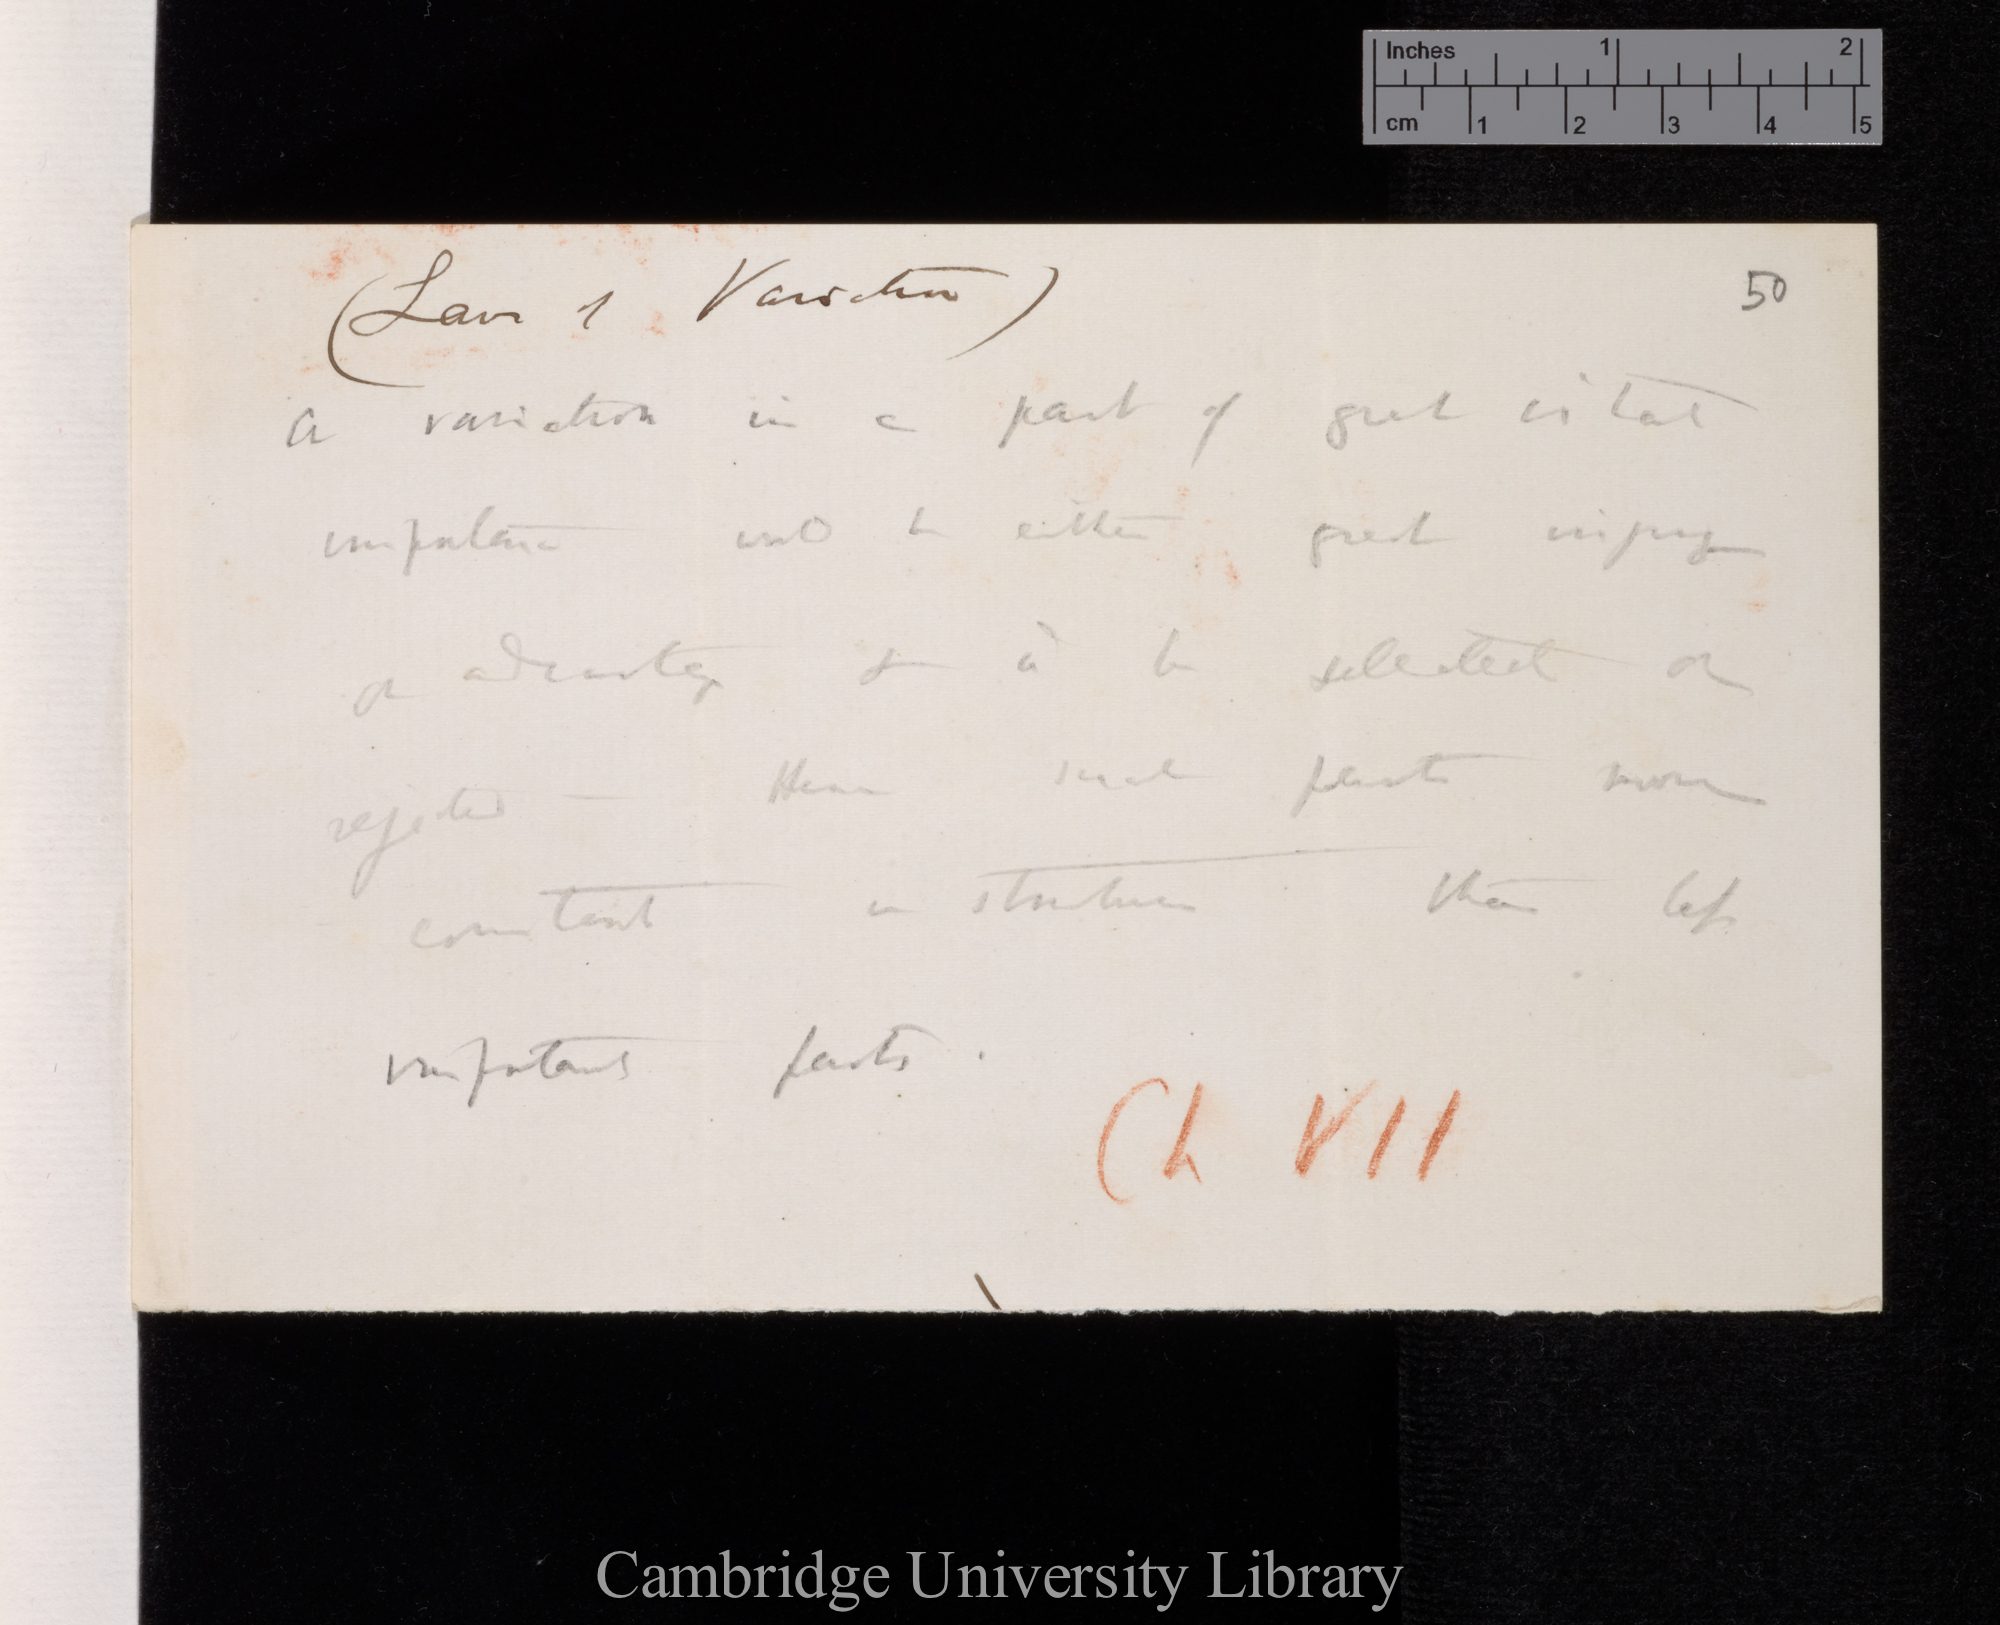 Inches 1 2
cm 1 2 3 4 5
50
(Laws of Variation)
A variation in a part of great vital
importance will be either great injury
or advantage & so be selected or
rejected — Hence such parts more
constant in structure than less
important parts.
Ch VII
Cambridge University Library